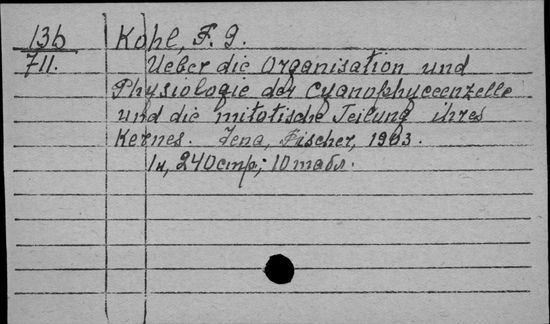 136
711.
Kohl, F. G.
Ueber die Organisation und
Physiologie der Cyanophyceenzelle
und die mitotische Teilung ihres
Kernes. Jena, Fischer, 1903.
1н, 240стр; 10табл.